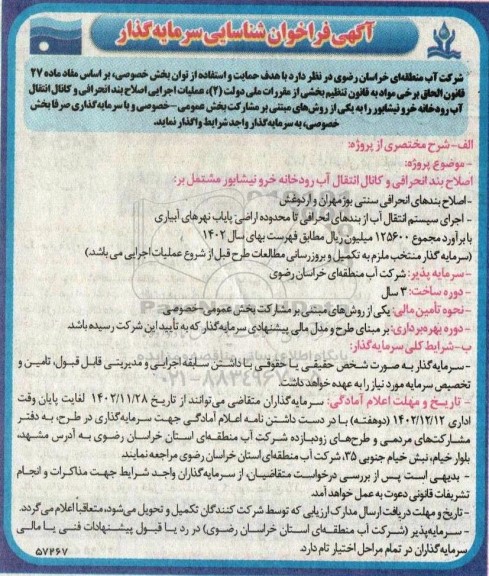 آگهی فراخوان شناسایی سرمایه‌گذار
شرکت آب منطقه‌ای خراسان رضوی در نظر دارد با هدف حمایت و استفاده از توان بخش خصوصی، بر اساس مفاد ماده ۲۷
قانون الحاق برخی مواد به قانون تنظیم بخشی از مقررات ملی دولت (۲)، عملیات اجرایی اصلاح بند انحرافی و کانال انتقال
آب رودخانه خرو نیشابور را به یکی از روش‌های مبتنی بر مشارکت بخش عمومی - خصوصی و یا سرمایه‌گذاری صرفا بخش
خصوصی، به سرمایه‌گذار واجد شرایط واگذار نماید.
الف- شرح مختصری از پروژه:
- موضوع پروژه:
اصلاح بند انحرافی و کانال انتقال آب رودخانه خرو نیشابور مشتمل بر:
- اصلاح بندهای انحرافی سنتی بوژمهران و اردوغش
- اجرای سیستم انتقال آب از بندهای انحرافی تا محدوده اراضی پایاب نهرهای آبیاری
با برآورد مجموع ۱۲۵۶۰۰ میلیون ریال مطابق فهرست بهای سال ۱۴۰۲
(سرمایه گذار منتخب ملزم به تکمیل و بروزرسانی مطالعات طرح قبل از شروع عملیات اجرایی می باشد)
- سرمایه پذیر: شرکت آب منطقه‌ای خراسان رضوی
- دوره ساخت: ۳ سال
- نحوه تأمین مالی: یکی از روش‌های مبتنی بر مشارکت بخش عمومی-خصوصی
- دوره بهره‌برداری: بر مبنای طرح و مدل مالی پیشنهادی سرمایه‌گذار که به تأیید این شرکت رسیده باشد.
ب- شرایط کلی سرمایه‌گذار:
- سرمایه‌گذار به صورت شخص حقیقی یا حقوقی با داشتن سابقه اجرایی و مدیریتی قابل قبول، تامین و
تخصیص سرمایه مورد نیاز را به عهده خواهد داشت.
- تاریخ و مهلت اعلام آمادگی: سرمایه‌گذاران متقاضی می‌توانند از تاریخ ۱۴۰۲/۱۱/۲۸ لغایت پایان وقت
اداری ۱۴۰۲/۱۲/۱۲ (دوهفته) با در دست داشتن نامه اعلام آمادگی جهت سرمایه‌گذاری در طرح، به دفتر
مشارکت‌های مردمی و طرح‌های زودبازده شرکت آب منطقه‌ای استان خراسان رضوی به آدرس مشهد،
بلوار خیام، نبش خیام جنوبی ۳۵، شرکت آب منطقه‌ای استان خراسان رضوی مراجعه نمایند.
- بدیهی است پس از بررسی درخواست متقاضیان، از سرمایه‌گذاران واجد شرایط جهت مذاکرات و انجام
تشریفات قانونی دعوت به عمل خواهد آمد.
- تاریخ و مهلت دریافت ارسال مدارک ارزیابی که توسط شرکت کنندگان تکمیل و تحویل می‌شود، متعاقباً اعلام می‌گردد.
- سرمایه‌پذیر (شرکت آب منطقه‌ای استان خراسان رضوی) در رد یا قبول پیشنهادات فنی یا مالی
سرمایه‌گذاران در تمام مراحل اختیار تام دارد.
۵۷۲۶۷
۰۲۱-۸۸۳۴۹۶۷